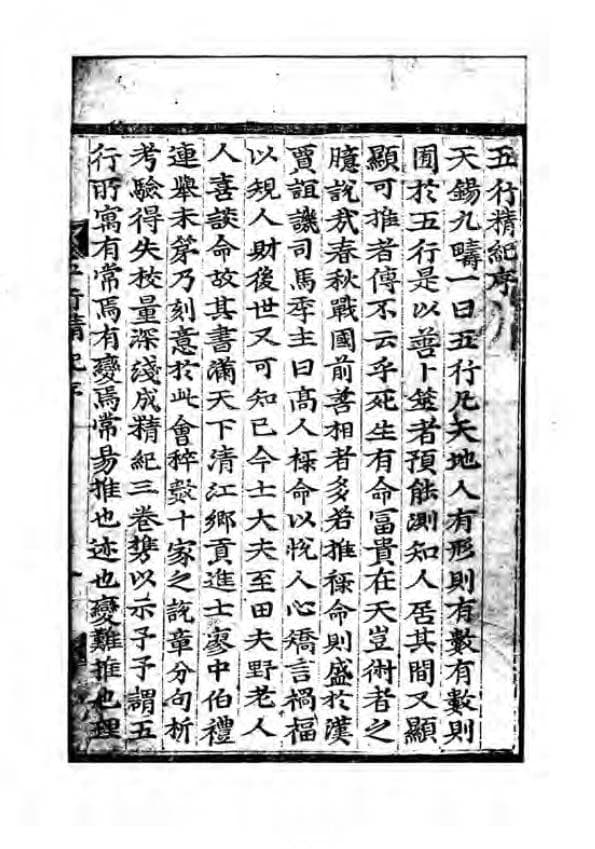 五行精紀序
天錫九疇一曰五行凡天地人有形則有數有數則
囿於五行是以善卜筮者預能測知人居其間又顯
顯可推者傳不云乎死生有命冨貴在天豈術者之
臆說哉春秋戰國前善相者多若推祿命則盛於漢
賈誼譏司馬季主曰髙人祿命以恱人心矯言禍福
以規人財後世又可知已今士大夫至田夫野老人
人喜談命故其書滿天下清江鄉貢進士廖中伯禮
連舉未第乃刻意於此會稡數十家之說章分句析
考驗得失校量深淺成精紀三卷携以示予予謂五
行所寓有常焉有變焉常易推也迹也變難推也理
五行精紀序